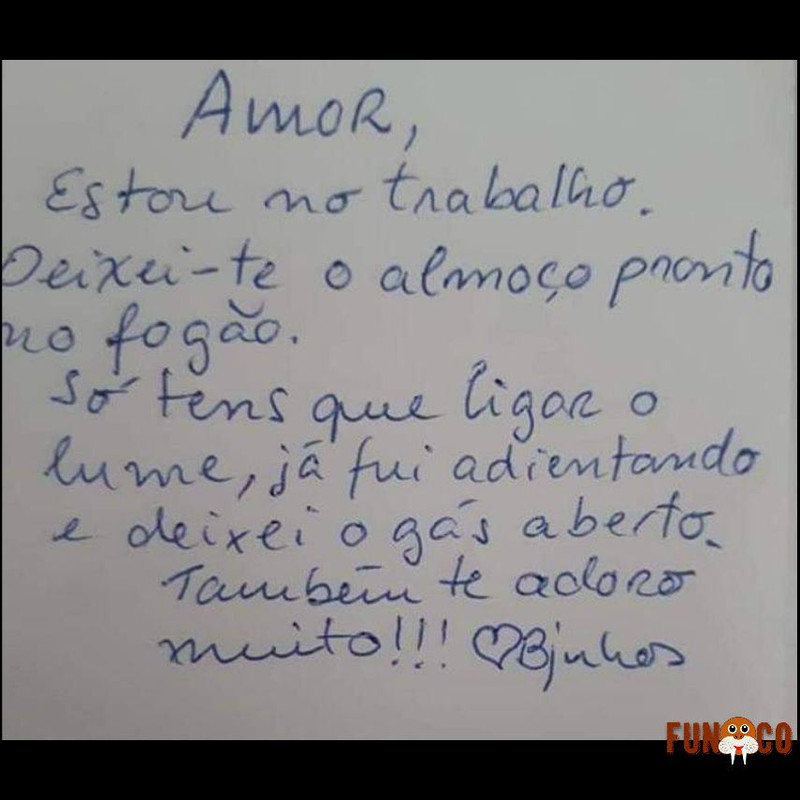 Amor,
Estou no trabalho.
Deixei-te o almoço pronto
no fogão.
Só tens que ligar o
lume, já fui adientando
e deixei o gás aberto.
Também te adoro
muito!!! ♡Bjnhos
FUN CO